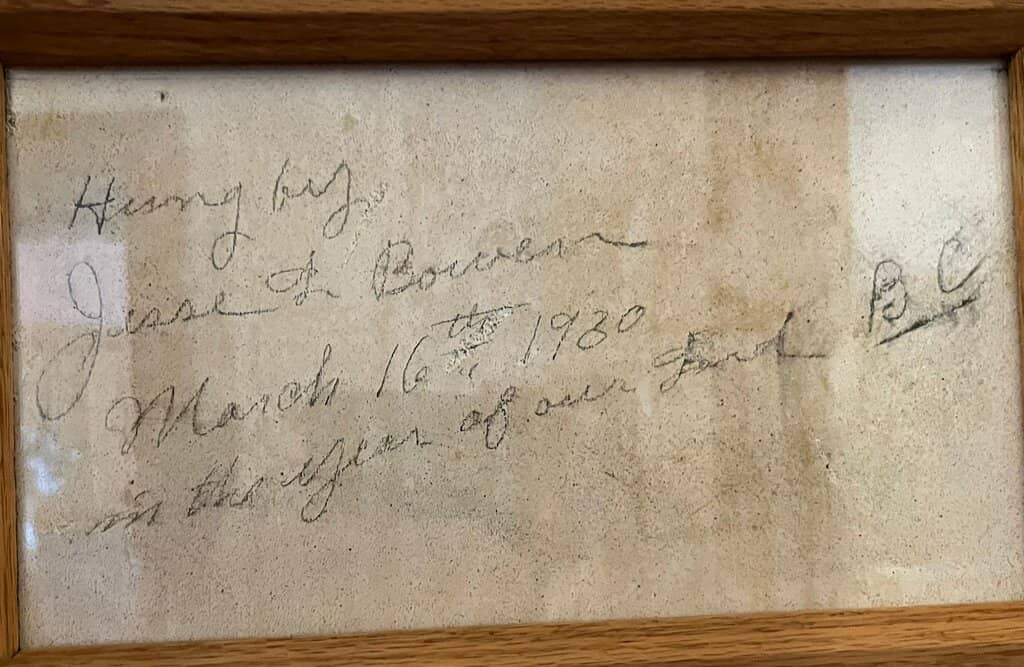 Hung by
Jesse L Bowen
March 16th 1930
in the year of our Lord B C